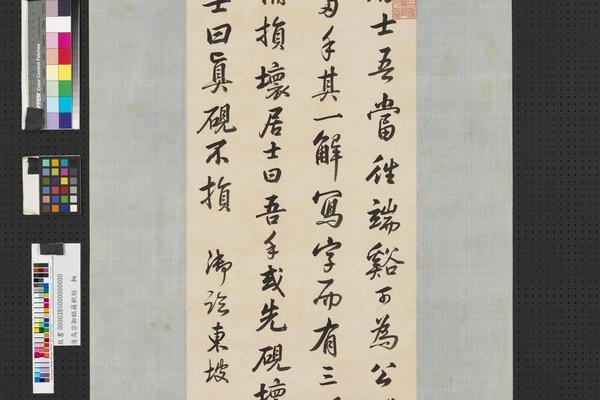 士吾當往端谿可為公
手其一解寫字而有三
損壞居士曰吾手或先硯壞
士曰真硯不損 御臨東坡
清高宗御臨蘇軾帖 軸